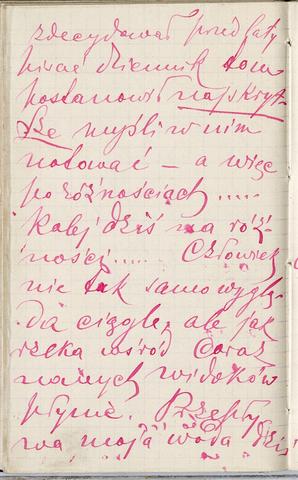 zdecydował przed laty
pisać dziennik tom
postanowił najskryt-
sze myśli w nim
notować – a więc
po różnościach .....
Kolej dziś na róż-
ności ..... Człowiek
nie tak samo wyglą-
da ciągle, ale jak
rzeka wśród Coraz
nowych widoków
płynie. Przepły
wa moja woda dziś